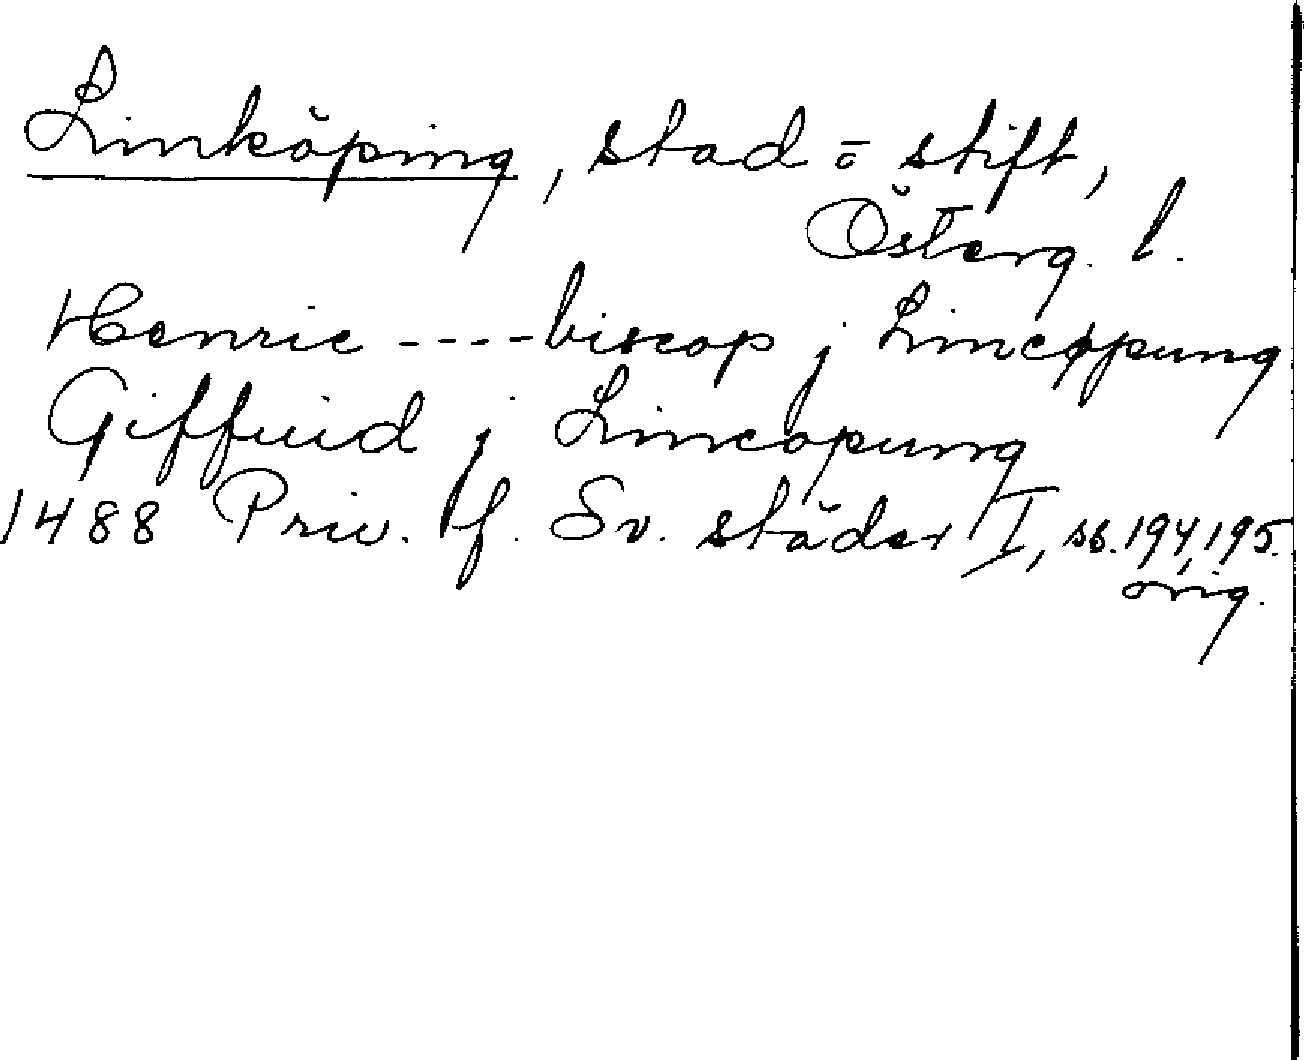 Linköping, stad o stift,
Österg. l.
Henric ---- biscop j Lincøpung
Giffuid j Lincopung
1488 Priv. f. Sv. städer I, ss. 194, 195.
orig.